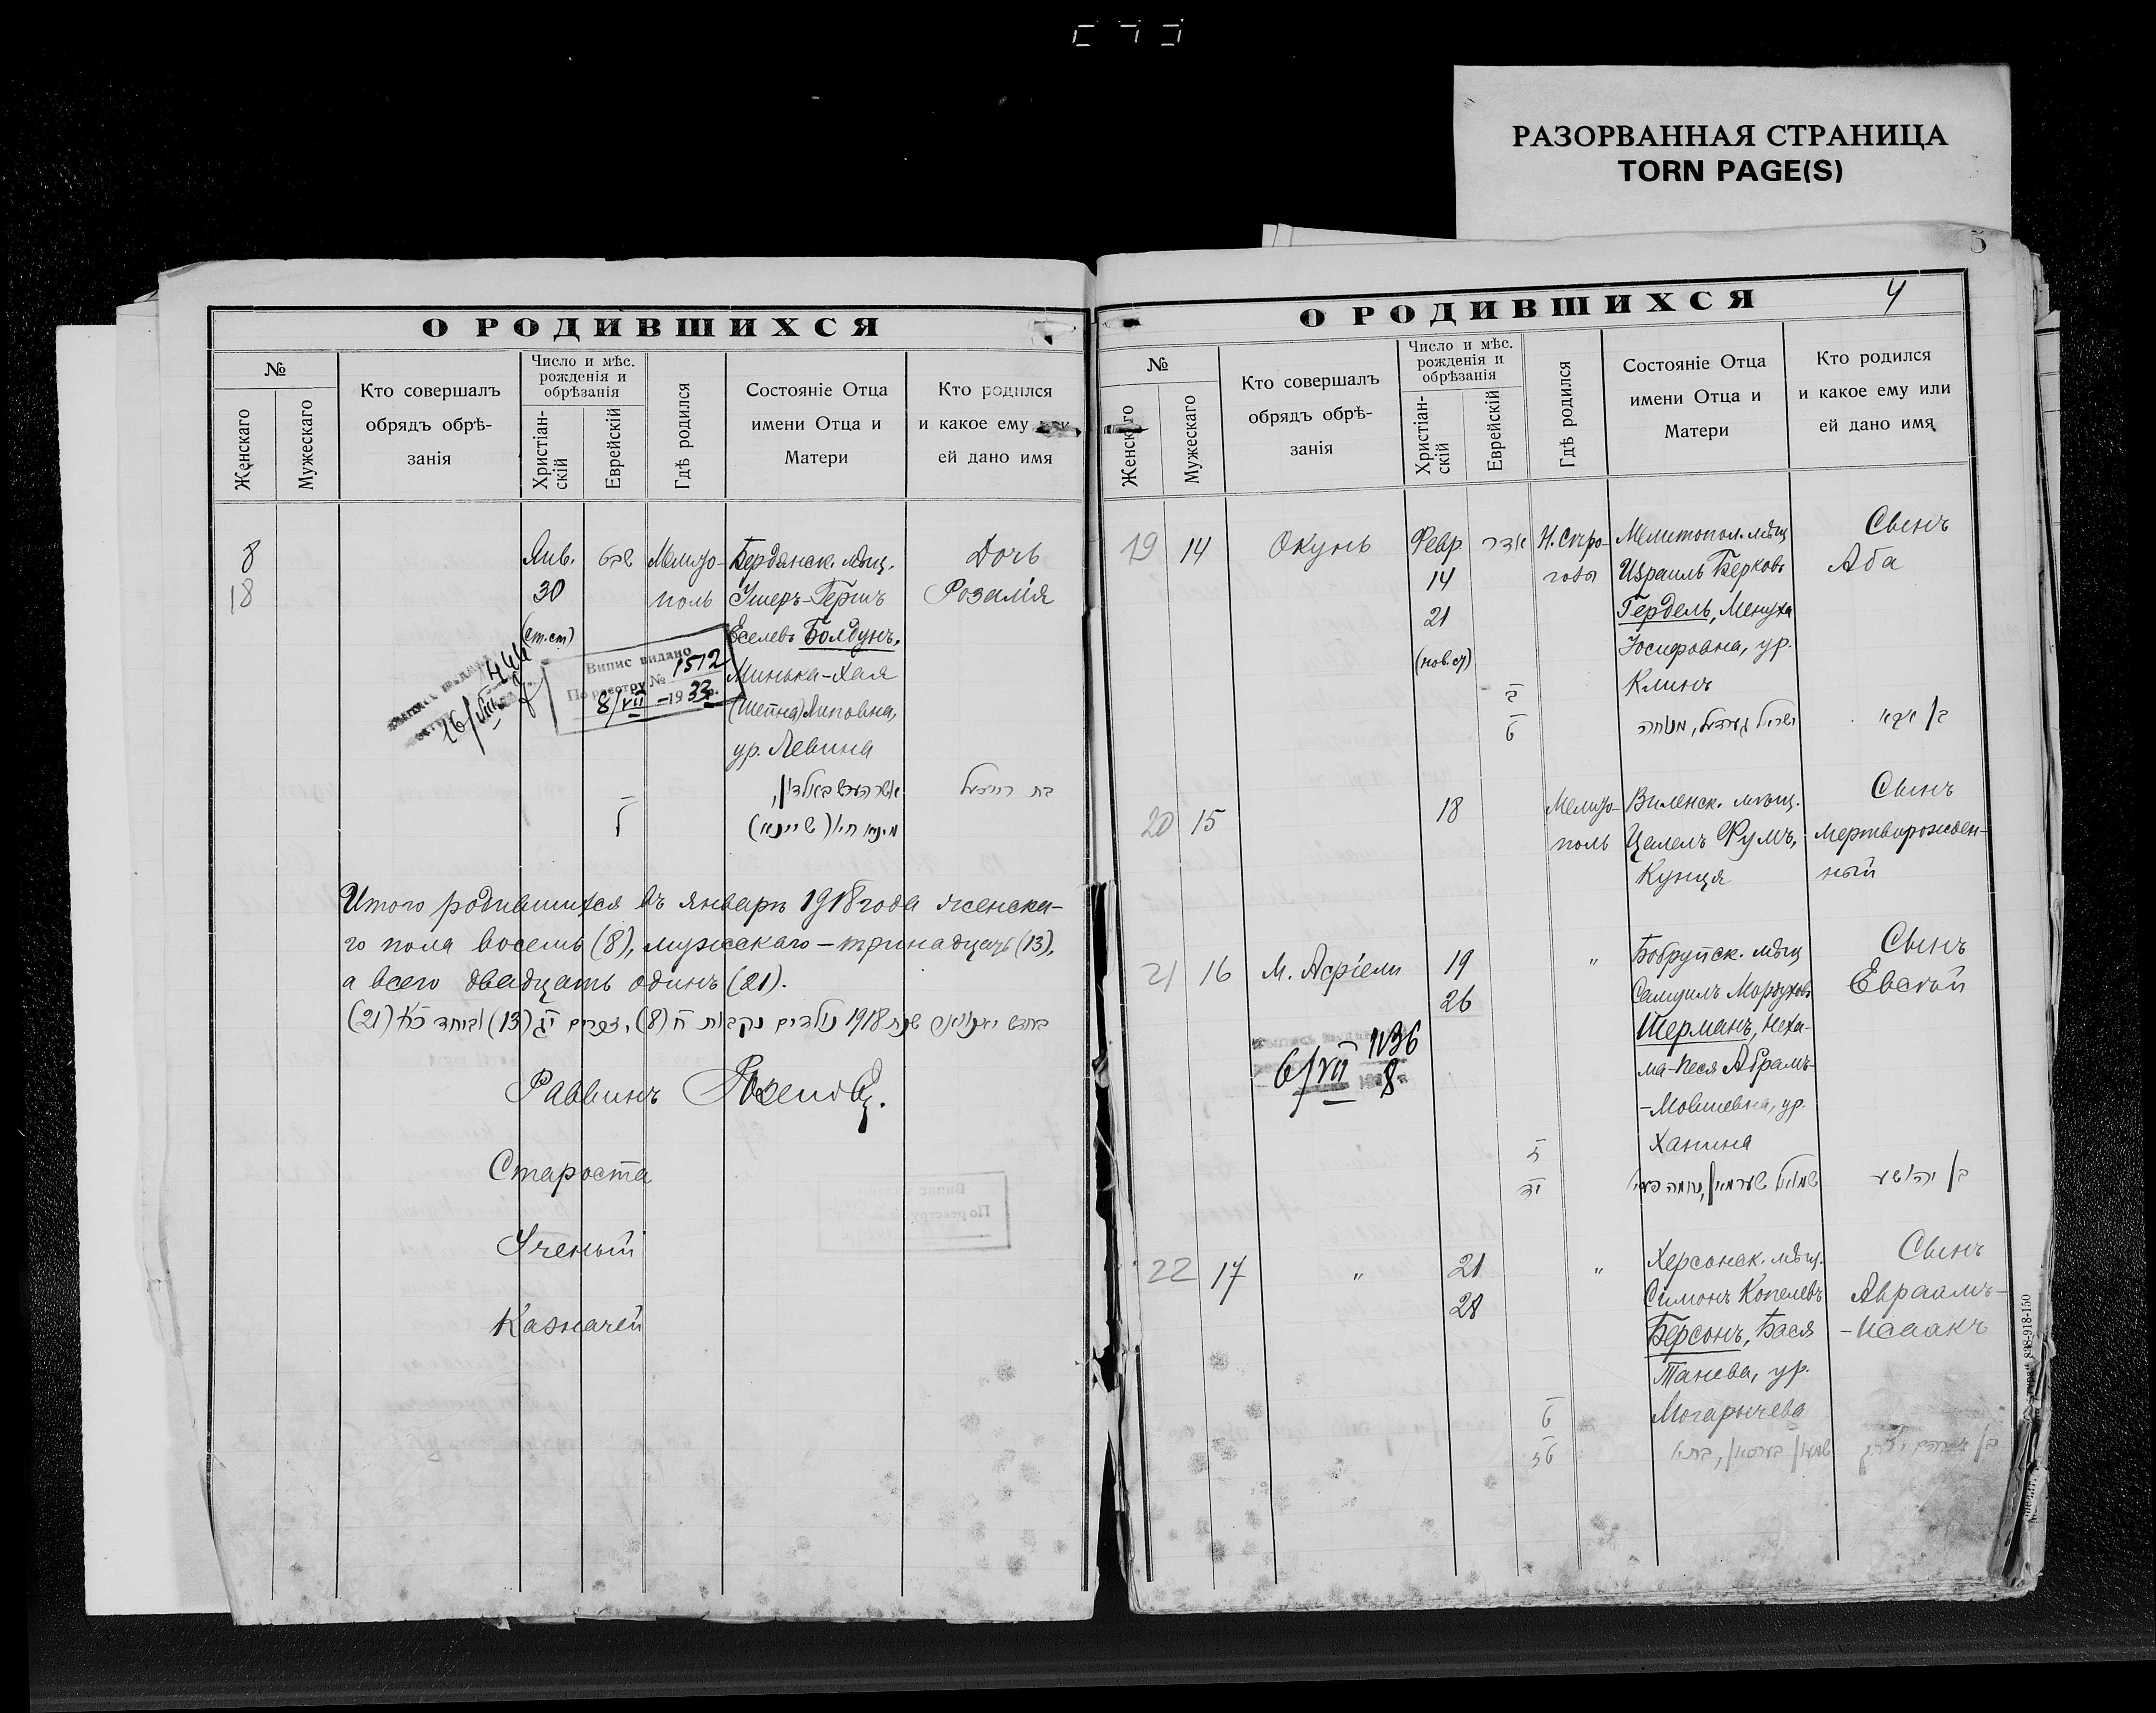 РАЗОРВАННАЯ СТРАНИЦА
TORN PAGE(S)
О РОДИВШИХСЯ
№
Женскаго
Мужескаго
Кто совершалъ
обрядъ обрѣ-
занія
Число и мѣс.
рожденія и
обрѣзанія
Христіан-
скій
Еврейскій
Гдѣ родился
Состояніе Отца
имени Отца и
Матери
Кто родился
и какое ему или
ей дано имя
8
18
Янв.
30
(ст.ст)
שבט
Мелито-
поль
Бердянск. мѣщ.
Ушеръ-Гершъ
Еселевъ Болдунъ,
Минька-Хая
(Шейна) Липовна,
ур. Левина
Дочь
Розалія
Випис видано
По реєстру № 1512
8/VII -1933р.
16/VIII
אשר הערש באלדין,
מינא חיי (שיינא)
בת רייזעל
Итого родившихся въ январѣ 1918 года женска-
го пола восемь (8), мужескаго - тринадцать (13),
а всего двадцать одинъ (21).
בחדש יאנוואר שנת 1918 נולדים נקבות ח (8), זכרים יג (13) וביחד כא (21)
Раввинъ
Староста
Ученый
Казначей
5
О РОДИВШИХСЯ
4
№
Женскаго
Мужескаго
Кто совершалъ
обрядъ обрѣ-
занія
Число и мѣс.
рожденія и
обрѣзанія
Христіан-
скій
Еврейскій
Гдѣ родился
Состояніе Отца
имени Отца и
Матери
Кто родился
и какое ему или
ей дано имя
19
14
Окунь
Февр
14
21
(нов.ст)
אדר
ב
ט
Н. Сѣро-
гозы
Мелитопол. мѣщ
Израиль Берковъ
Гердель, Менуха
Іосифовна, ур.
Клинъ
ישראל גערדעל, מנוחה
Сынъ
Аба
בן אבא
20
15
18
Мелито-
поль
Виленск. мѣщ.
Цалелъ Фумъ,
Кунця
Сынъ
мертворожден-
ный
21
16
М. Асріели
19
26
"
Бобруйск. мѣщ
Самуилъ Мордуховъ
Шерманъ, Неха-
ма-Песя Абрамъ-
-Мовшевна, ур.
Ханина
ז
יד
שמואל שערמאן, נחמה פעסי
Сынъ
Евсѣй
בן יהושע
6/VII 1136
8
22
17
"
21
28
"
Херсонск. мѣщ.
Симонъ Копелевъ
Берсонъ, Бася
Танева, ур.
Могарычева
ט
טז
שמעון בערסאן, בתי'
Сынъ
Авраамъ-
-Исаакъ
בן אברהם יצחק
838-918-150